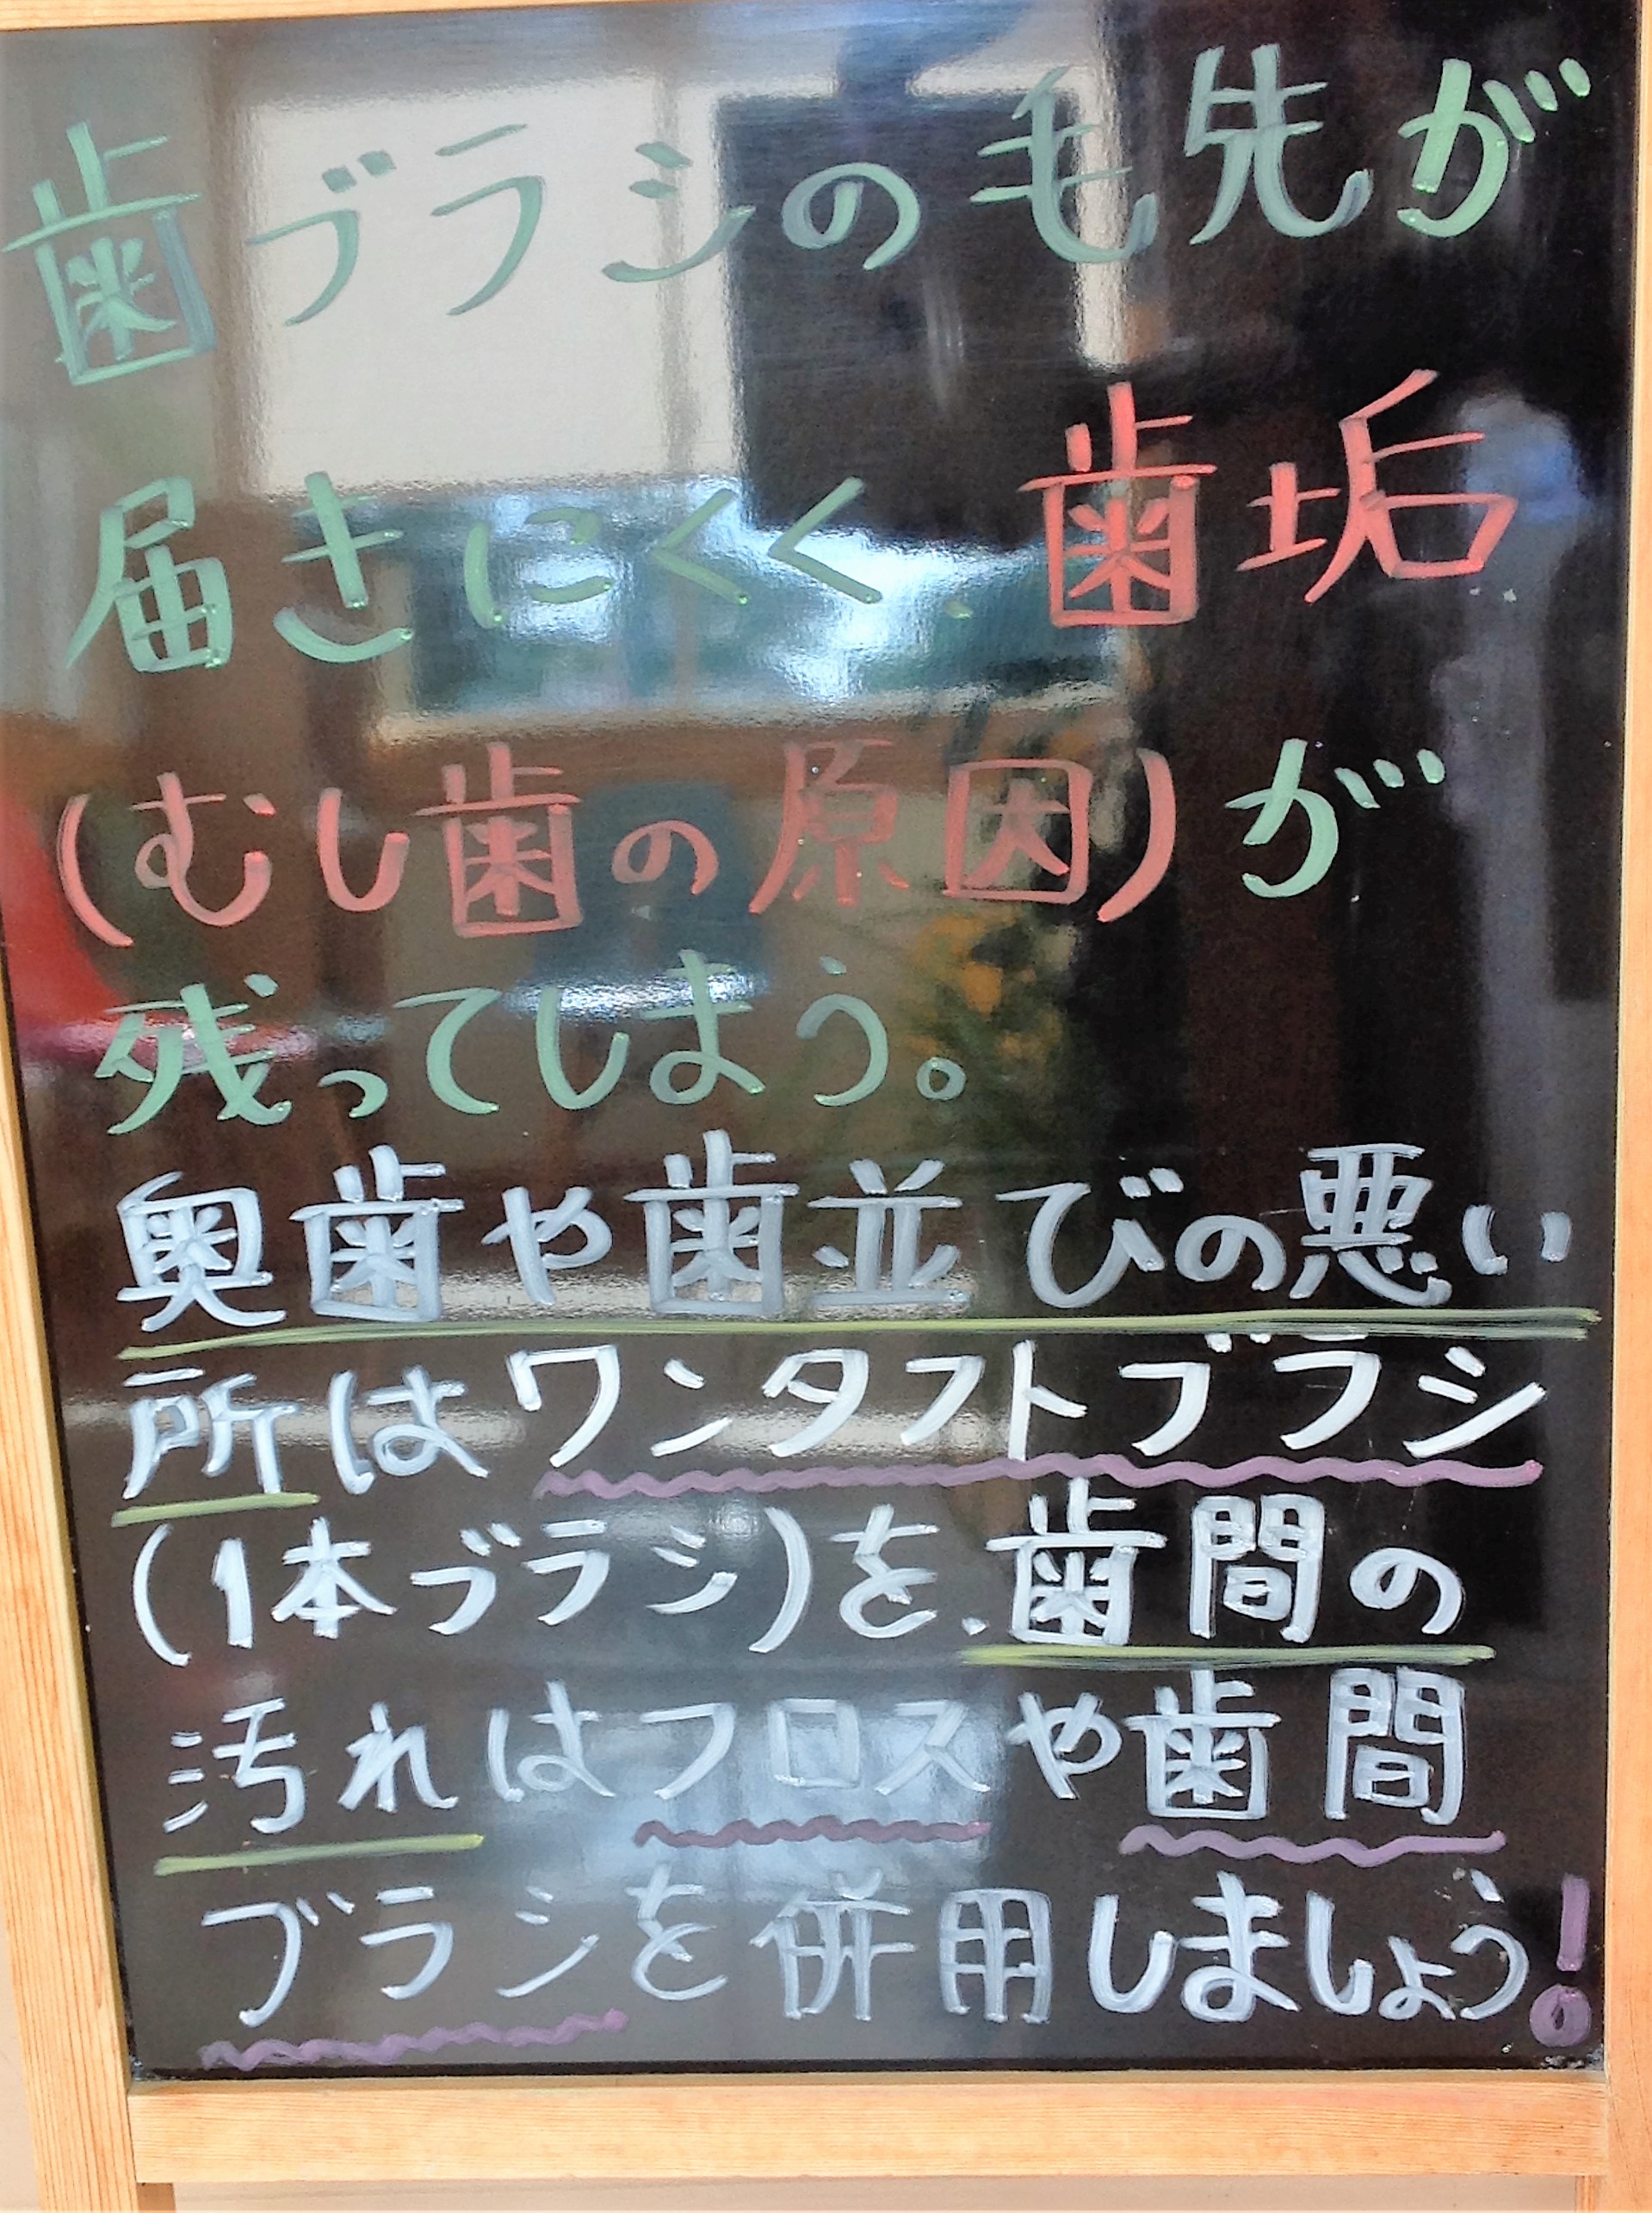 歯ブラシの毛先が
届きにくく、歯垢
(むし歯の原因)が
残ってしまう。
奥歯や歯並びの悪い
所はワンタフトブラシ
(1本ブラシ)を、歯間の
汚れはフロスや歯間
ブラシを併用しましょう!